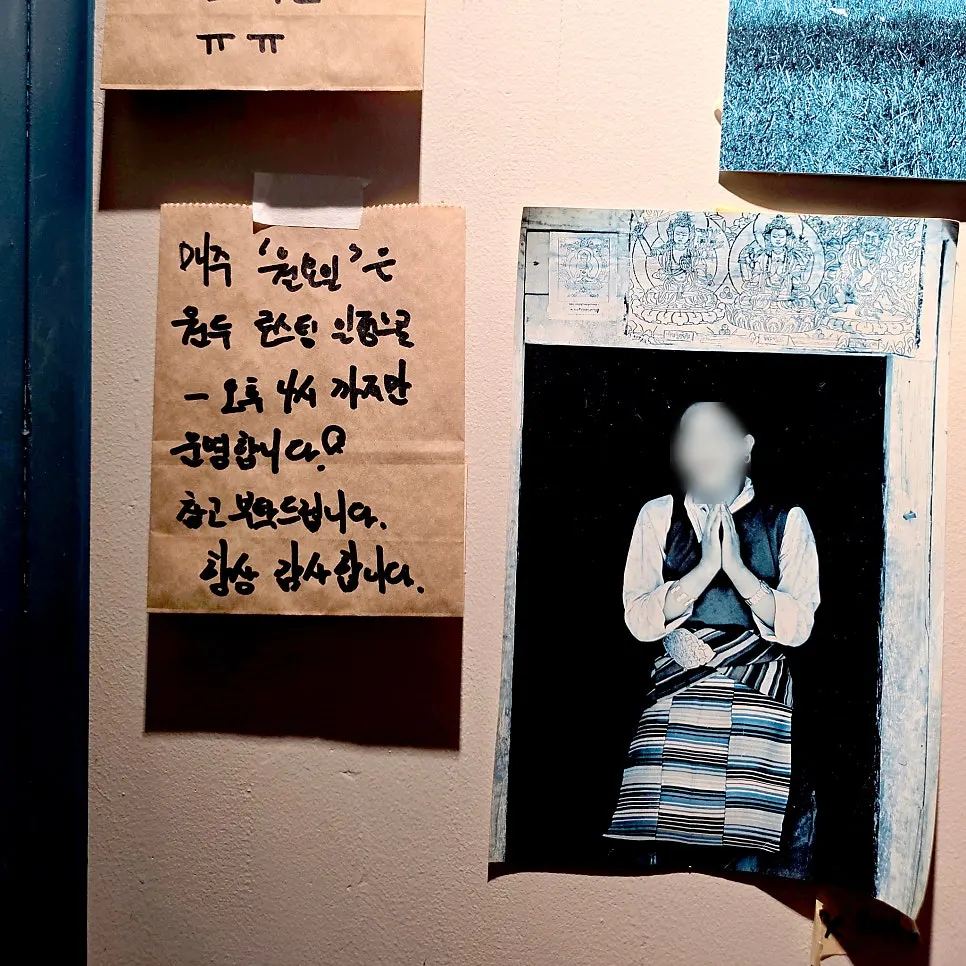 ㅠㅠ
매주 '월요일'은
원두 로스팅 일정으로
- 오후 4시 까지만
운영합니다.
참고 부탁드립니다.
항상 감사합니다.